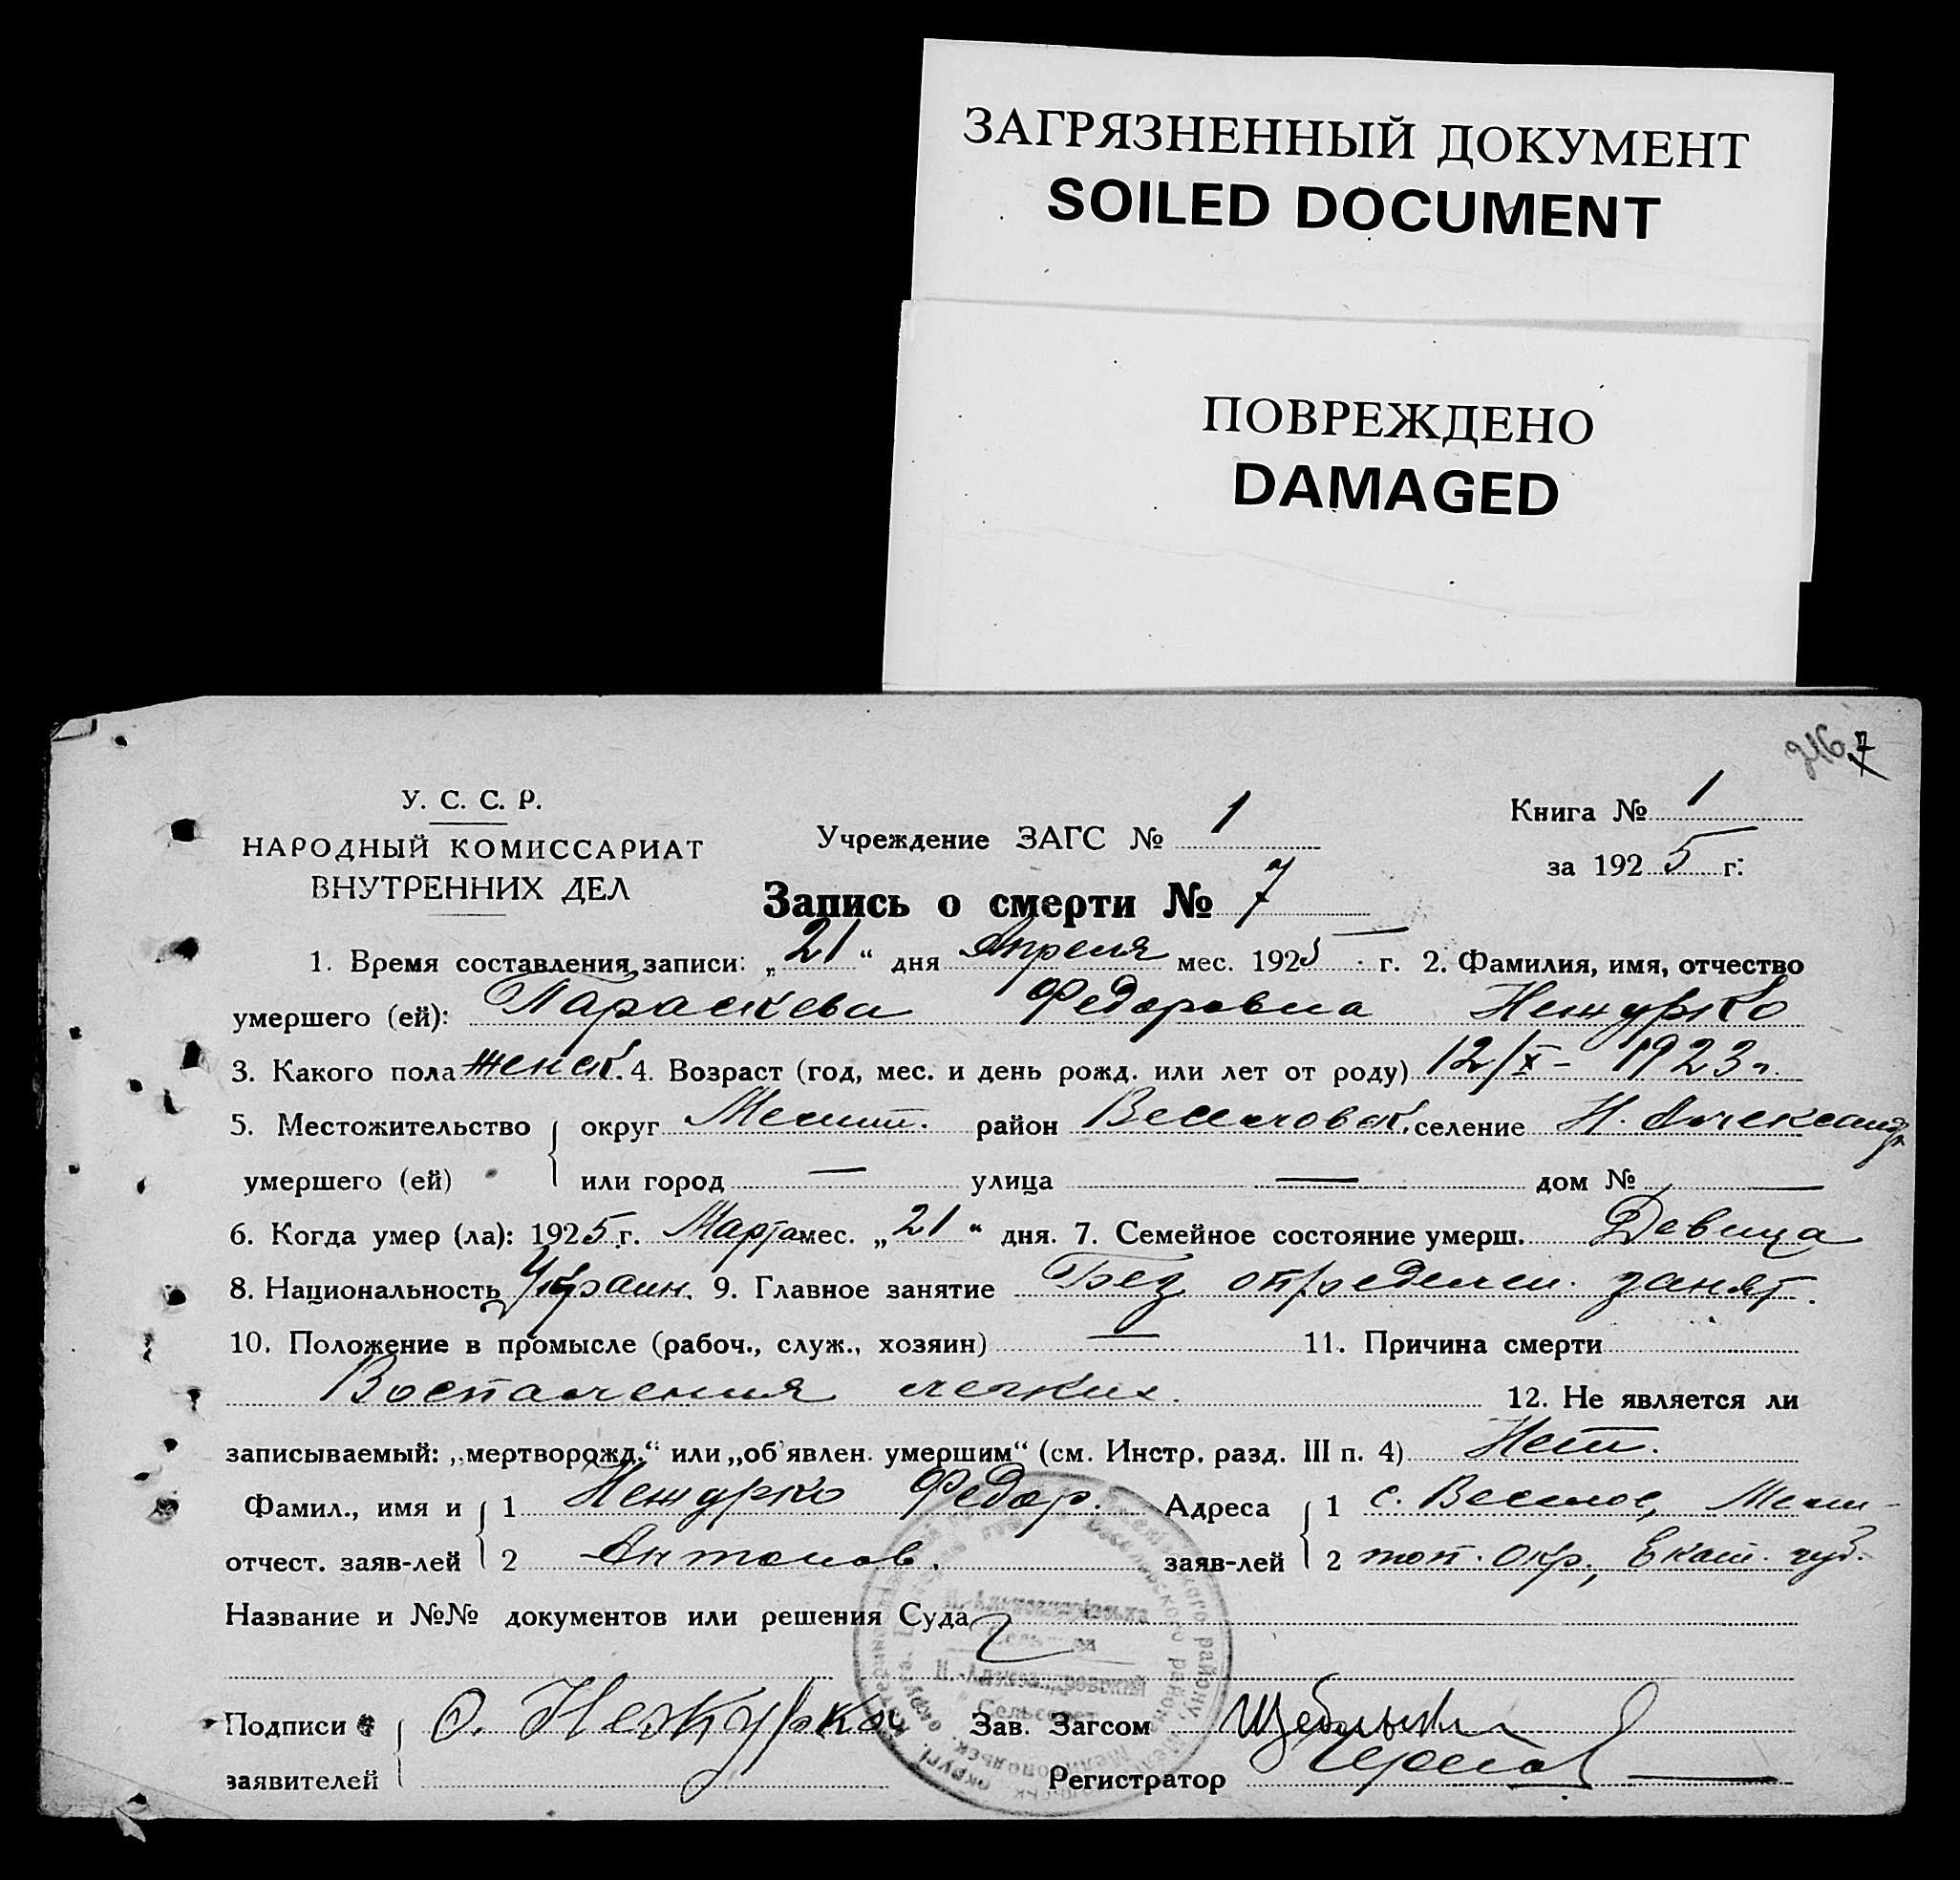 ЗАГРЯЗНЕННЫЙ ДОКУМЕНТ
SOILED DOCUMENT
ПОВРЕЖДЕНО
DAMAGED
7
У. С. С. Р.
НАРОДНЫЙ КОМИССАРИАТ
ВНУТРЕННИХ ДЕЛ
Учреждение ЗАГС № 1
Книга № 1
за 1925 г.
Запись о смерти № 7
1. Время составления записи: „21“ дня Апреля мес. 1925 г. 2. Фамилия, имя, отчество
умершего (ей): Параскева Федоровна Нежурко
3. Какого пола женск. 4. Возраст (год, мес. и день рожд. или лет от роду) 12/X - 1923 г.
5. Местожительство округ Мелит. район Веселовск. селение Н. Александр
умершего (ей) или город — улица — дом № —
6. Когда умер (ла): 1925 г. Марта мес. „21“ дня. 7. Семейное состояние умерш. Девица
8. Национальность Украин. 9. Главное занятие Без определен. занят.
10. Положение в промысле (рабоч., служ., хозяин) — 11. Причина смерти
Воспаления легких. 12. Не является ли
записываемый: „мертворожд.“ или „об'явлен. умершим“ (см. Инстр. разд. III п. 4) Нет.
Фамил., имя и 1 Нежурко Федор. Адреса 1 с. Веселое, Мели-
отчест. заяв-лей 2 Антонов. заяв-лей 2 топ. окр., Екат. губ.
Название и №№ документов или решения Суда
Н.-Александровский
Сельсовет
Подписи Ф. Нежурко Зав. Загсом
заявителей Регистратор